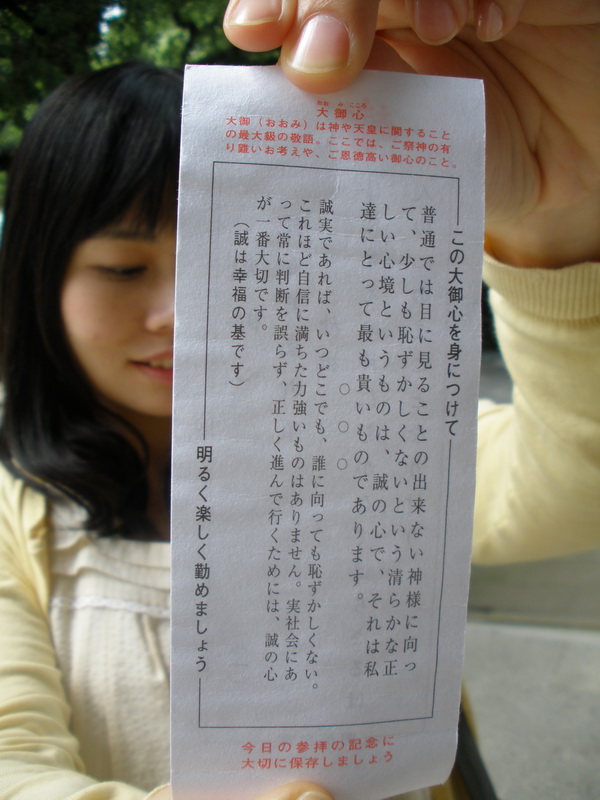 おおみごころ
大御心
大御（おおみ）は神や天皇に関すること
の最大級の敬語。ここでは、ご祭神の有
り難いお考えや、ご恩徳高い御心のこと。
この大御心を身につけて
普通では目に見ることの出来ない神様に向っ
て、少しも恥ずかしくないという清らかな正
しい心境というものは、誠の心で、それは私
達にとって最も貴いものであります。
○○○
誠実であれば、いつどこでも、誰に向っても恥ずかしくない。
これほど自信に満ちた力強いものはありません。実社会にあ
って常に判断を誤らず、正しく進んで行くためには、誠の心
が一番大切です。
（誠は幸福の基です）
明るく楽しく勤めましょう
今日の参拝の記念に
大切に保存しましょう